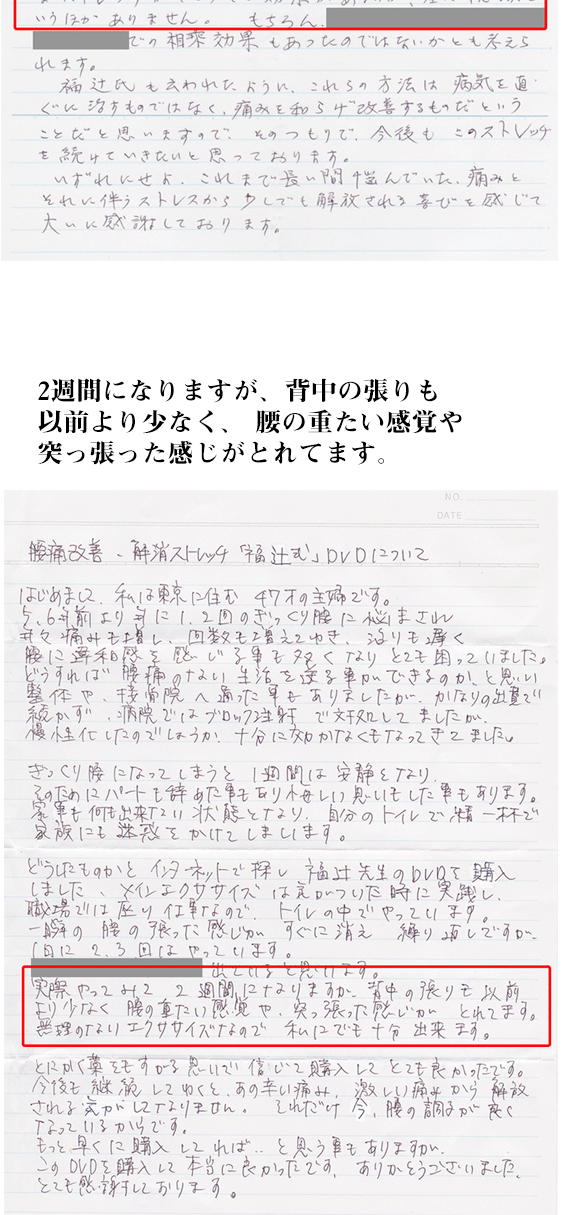 いうほかありません。 もちろん、
での相乗効果もあったのではないかとも考えら
れます。
福辻氏も云われたように、これらの方法は病気を直
ぐに治すものではなく、痛みを和らげ改善するものだという
ことだと思いますので、そのつもりで、今後もこのストレッチ
を続けていきたいと思っております。
いずれにせよ、これまで長い間悩んでいた、痛みと
それに伴うストレスから少しでも解放される喜びを感じて
大いに感謝しております。
2週間になりますが、背中の張りも
以前より少なく、 腰の重たい感覚や
突っ張った感じがとれてます。
NO.
DATE
腰痛改善・解消ストレッチ「福辻式」DVDについて
はじめまして、私は東京に住む 47才の主婦です。
5、6年前より年に1、2回のぎっくり腰に悩まされ
年々痛みも増し、回数も増えてゆき、治りも遅く
腰に違和感を感じる事も多くなりとても困っていました。
どうすれば腰痛のない生活を送る事ができるのか、と思い
整体や、接骨院へ通った事もありましたが、かなりの出費で
続かず、病院ではブロック注射で対処してましたが、
慢性化したのでしょうか、十分に効かなくもなってきてました。
ぎっくり腰になってしまうと 1週間は安静となり、
そのためにパートも辞めた事もあり悔しい思いもした事もあります。
家事も何も出来ない状態となり、自分のトイレで精一杯で
家族にも迷惑をかけてしまいます。
どうしたものかとインターネットで探し 福辻先生のDVDを購入
しました。メインエクササイズは気がついた時に実践し、
職場では座り仕事なので、トイレの中でやっています。
一瞬の腰の張った感じが すぐに消え 繰り返しですが、
1日に2、3回はやっています。
出ていると思います。
実際やってみて 2週間になりますが、背中の張りも以前
より少なく 腰の重たい感覚や、突っ張った感じが とれてます。
無理のないエクササイズなので 私にでも十分出来ます。
とにかく藁をもすがる思いで信じて購入してとても良かったです。
今後も継続してゆくと、あの辛い痛み、激しい痛みから解放
される気がしてなりません。それだけ今、腰の調子が良く
なっているからです。
もっと早くに購入してれば‥と思う事もありますが、
このDVDを購入して本当に良かったです。ありがとうございました。
とても感謝しております。